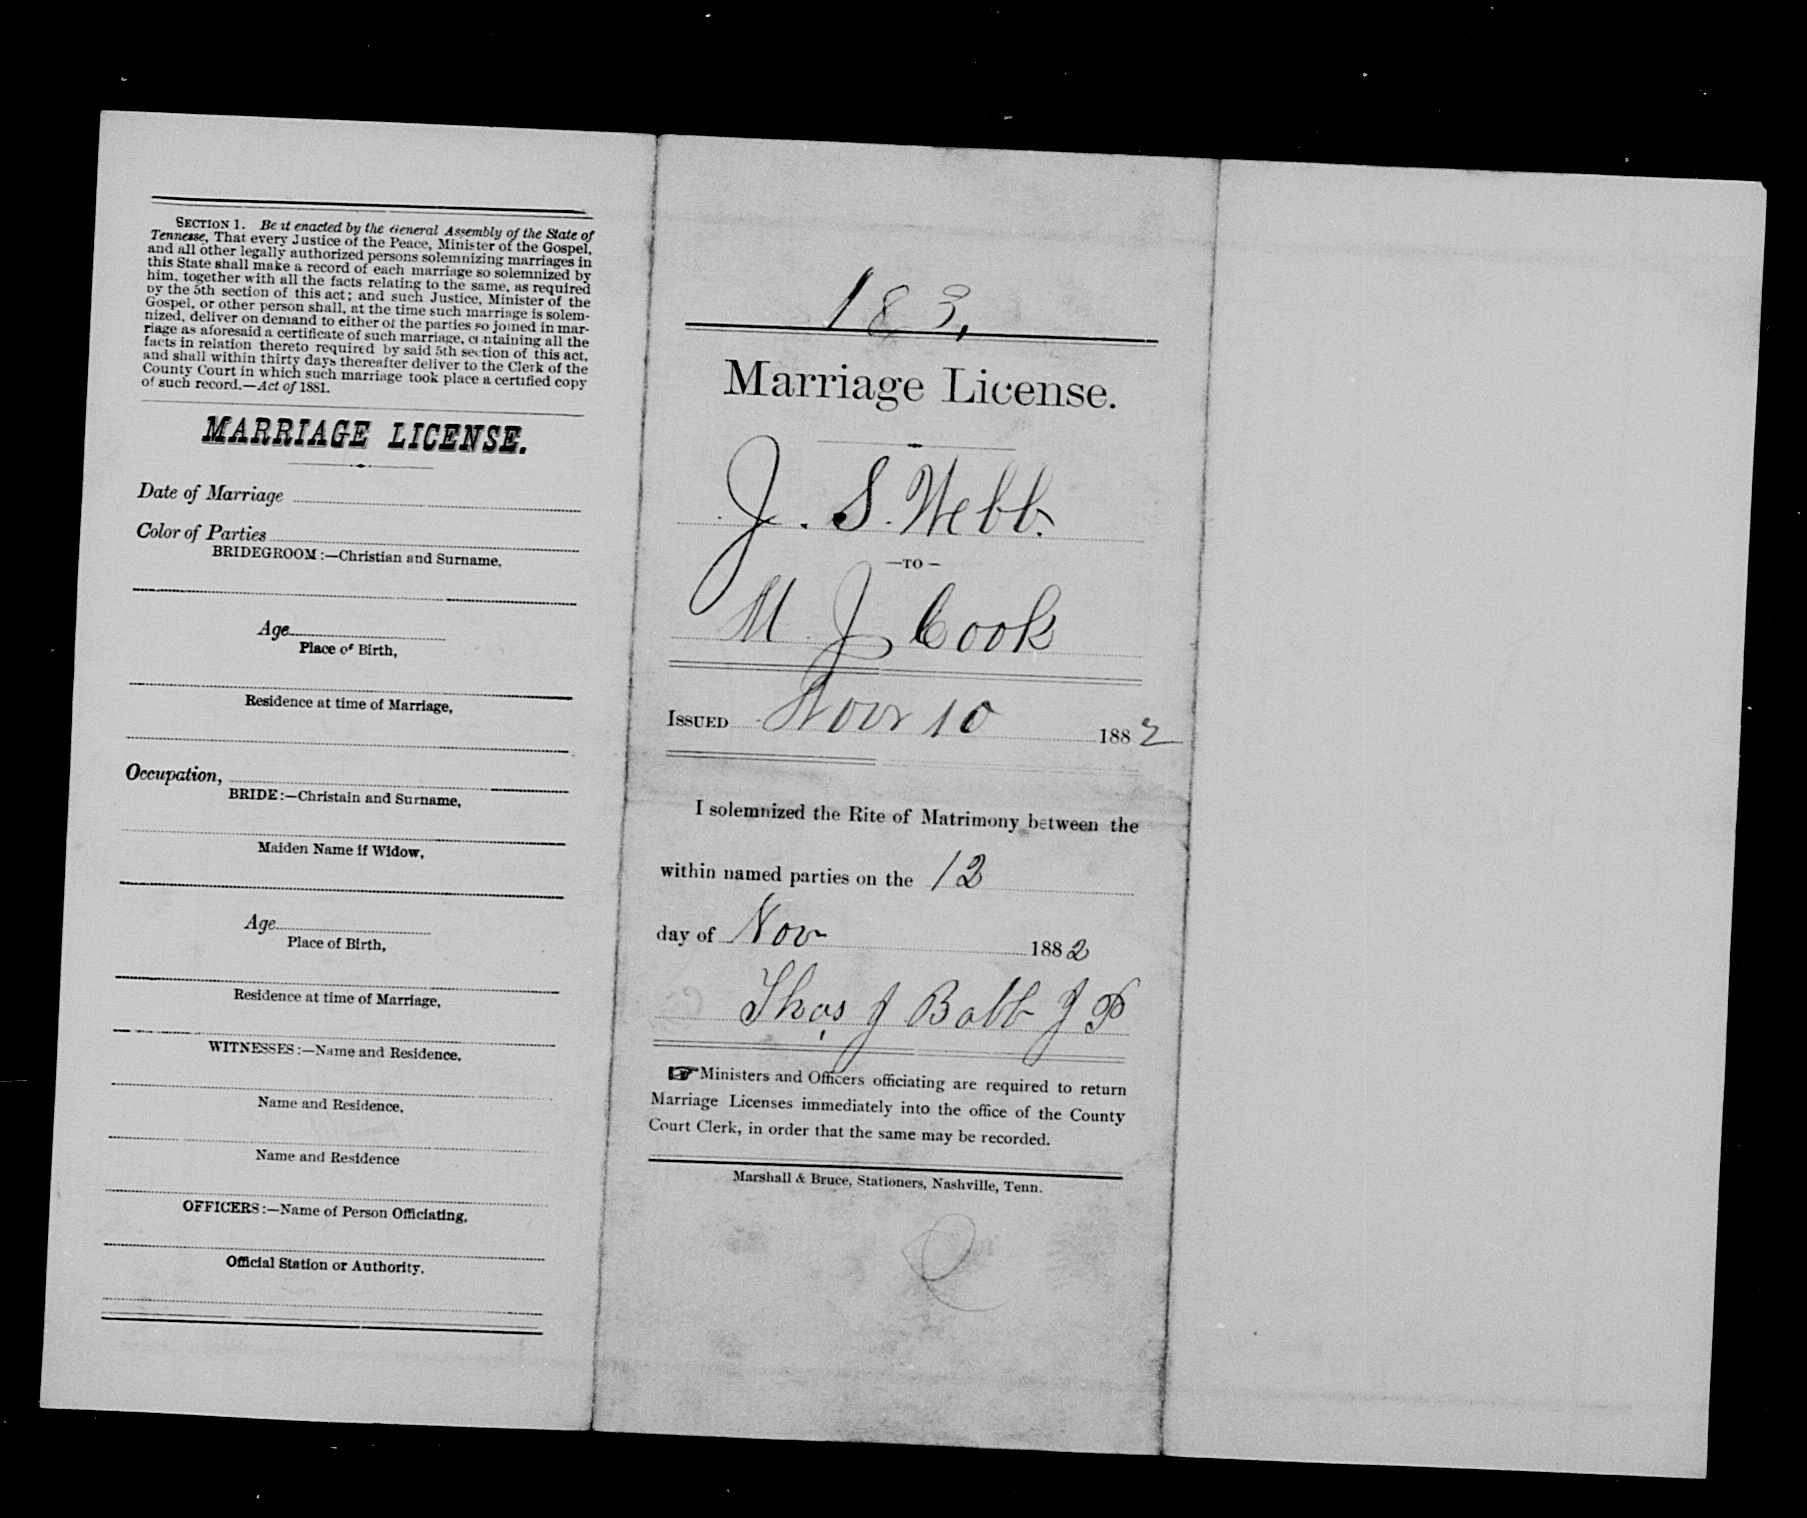 SECTION 1. Be it enacted by the General Assembly of the State of
Tennesse, That every Justice of the Peace, Minister of the Gospel,
and all other legally authorized persons solemnizing marriages in
this State shall make a record of each marriage so solemnized by
him, together with all the facts relating to the same, as required
by the 5th section of this act; and such Justice, Minister of the
Gospel, or other person shall, at the time such marriage is solem-
nized, deliver on demand to either of the parties so joined in mar-
riage as aforesaid a certificate of such marriage, containing all the
facts in relation thereto required by said 5th section of this act,
and shall within thirty days thereafter deliver to the Clerk of the
County Court in which such marriage took place a certified copy
of such record.—Act of 1881.
MARRIAGE LICENSE.
Date of Marriage
Color of Parties
BRIDEGROOM:—Christian and Surname,
Age
Place of Birth,
Residence at time of Marriage,
Occupation,
BRIDE:—Christain and Surname,
Maiden Name if Widow,
Age
Place of Birth,
Residence at time of Marriage,
WITNESSES:—Name and Residence,
Name and Residence,
Name and Residence
OFFICERS:—Name of Person Officiating,
Official Station or Authority.
183,
Marriage License.
J. S. Webb.
—TO—
M. J Cook
ISSUED Nov 10 1882
I solemnized the Rite of Matrimony between the
within named parties on the 12
day of Nov 1882
Thos J Babb J P
☞ Ministers and Officers officiating are required to return
Marriage Licenses immediately into the office of the County
Court Clerk, in order that the same may be recorded.
Marshall & Bruce, Stationers, Nashville, Tenn.